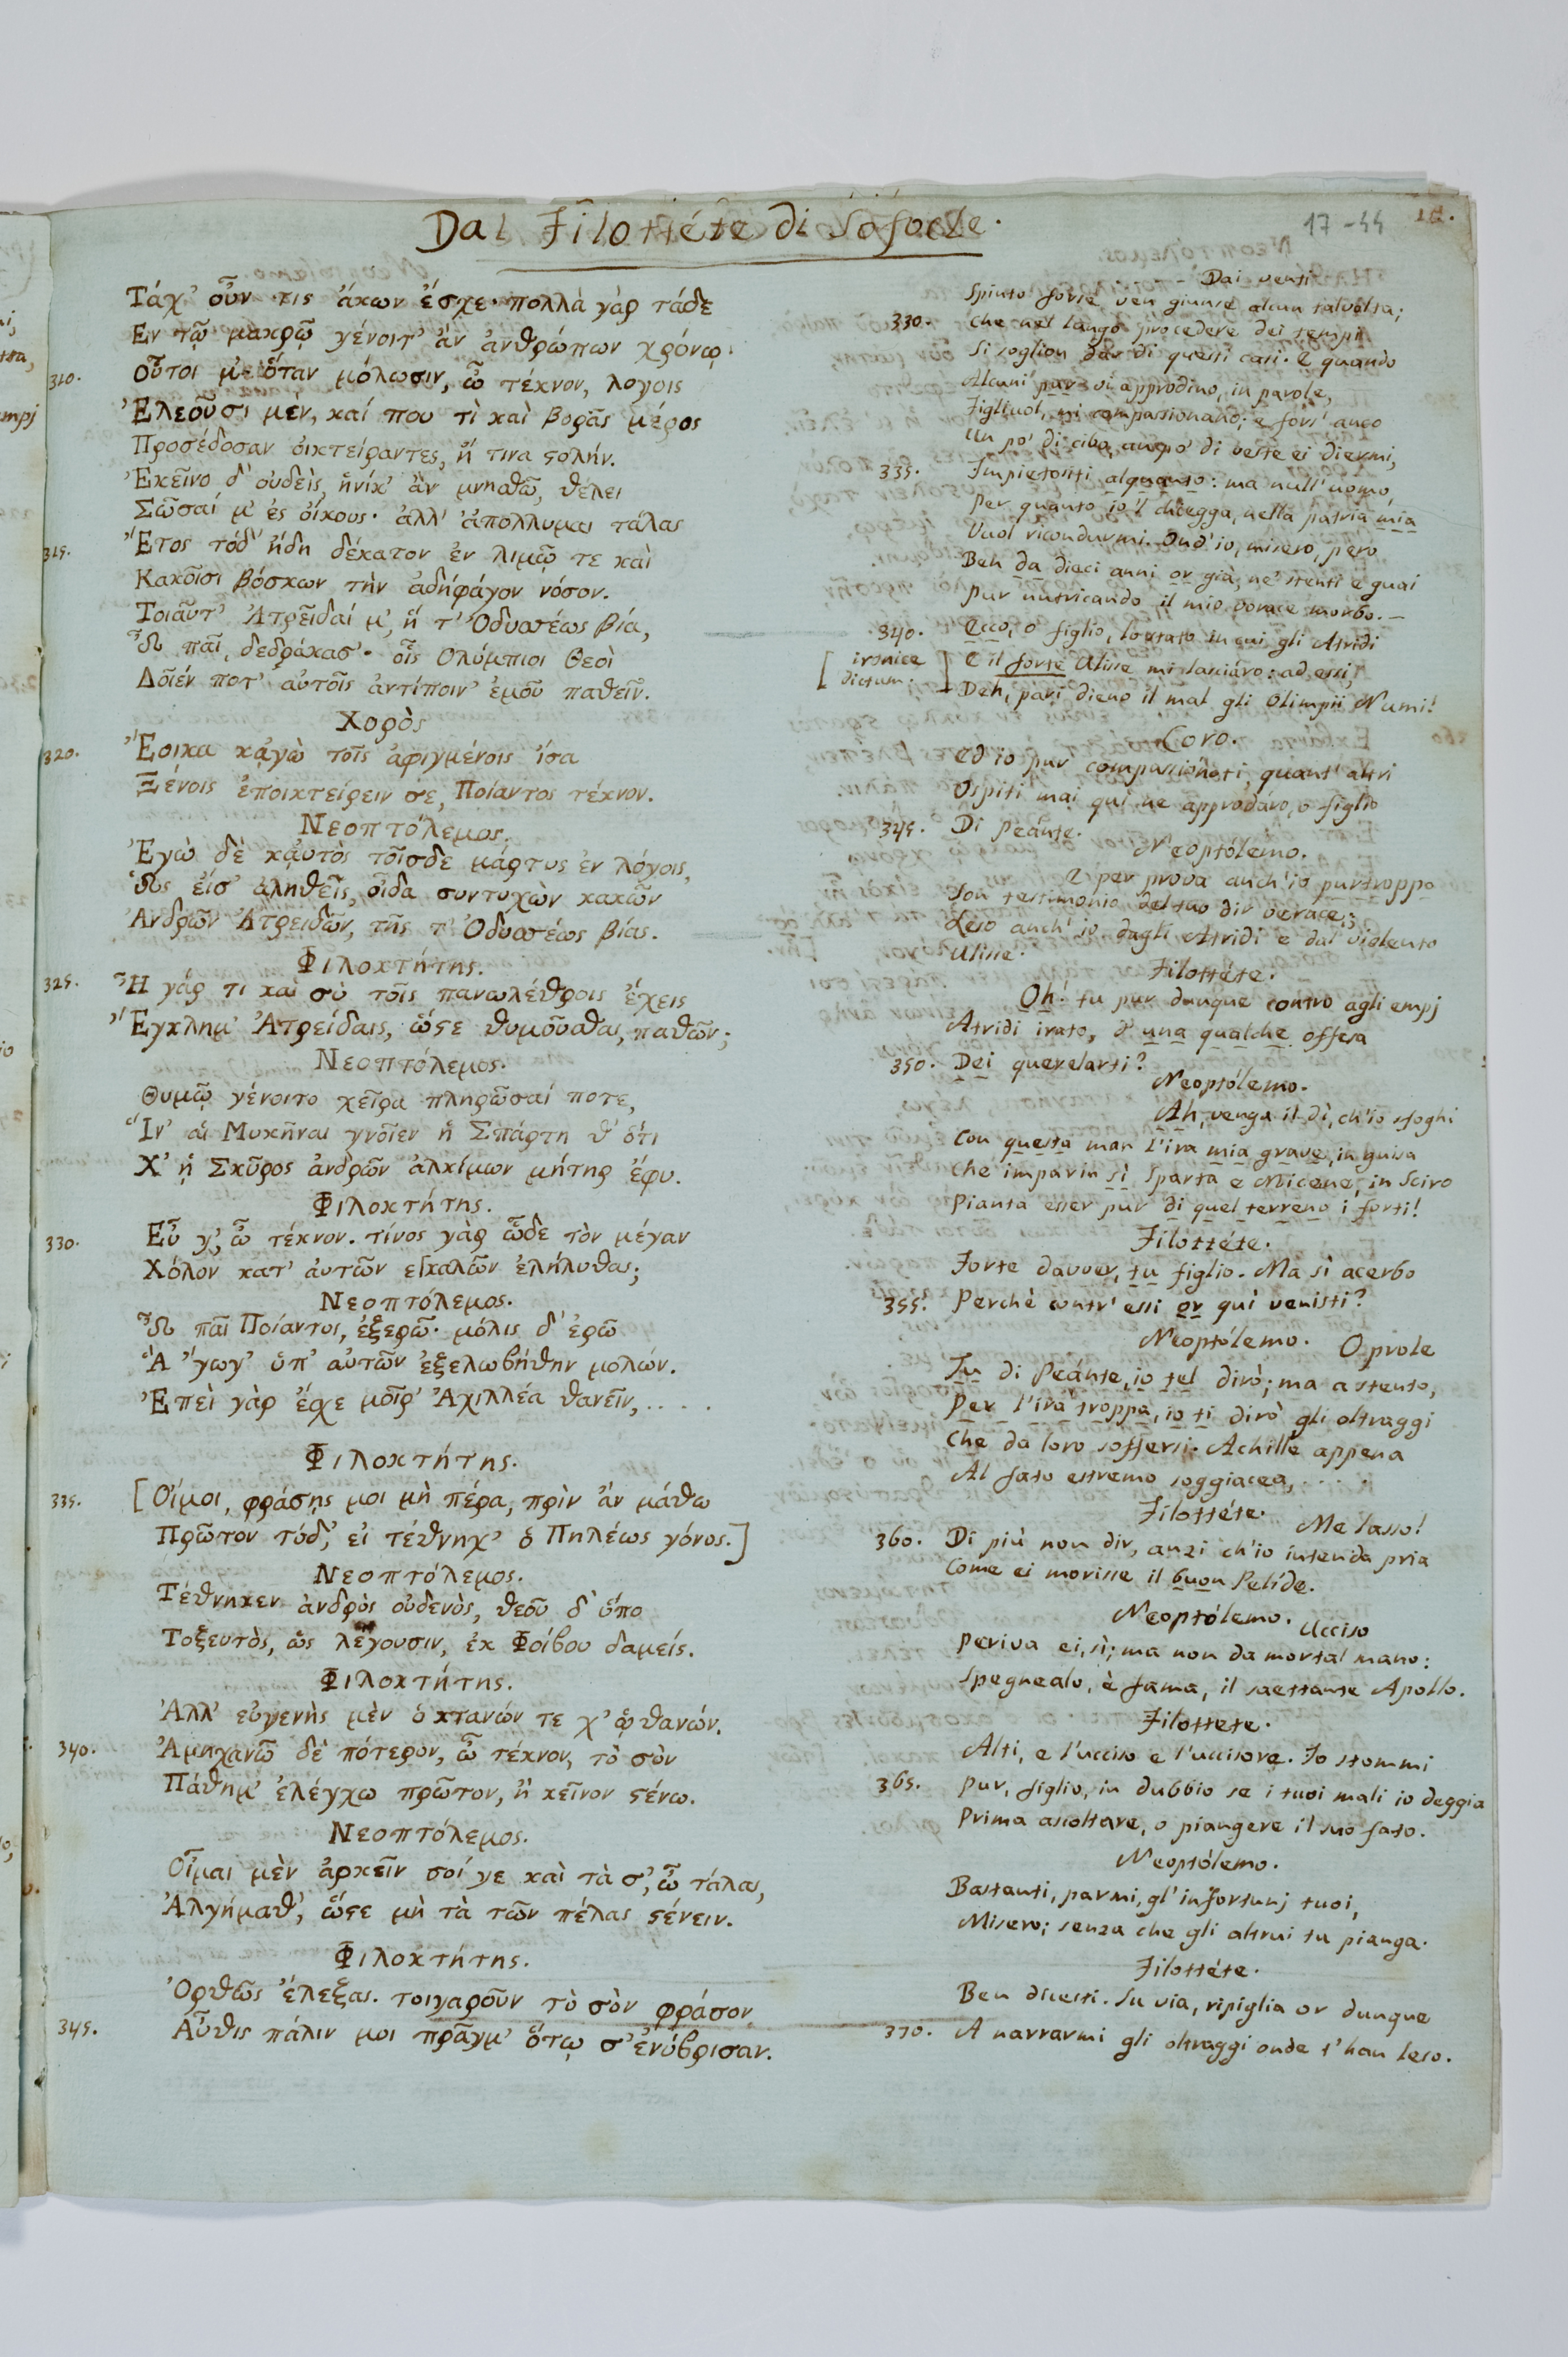 Dal Filottéte di Sofocle.
17-44
Τάχ' οὖν τις ἄκων ἔσχε· πολλὰ γὰρ τάδε
Εν τῷ μακρῷ γένοιτ' ἂν ἀνθρώπων χρόνῳ·
310.
οὗτοι μ' ὅταν μόλωσιν, ὦ τέκνον, λογοις
Ἐλεοῦσι μέν, καί που τὶ καὶ βορᾶς μέρος
Προσέδοσαν οἰκτείραντες, ἤ τινα ϛολήν.
Ἐκεῖνο δ' οὐδεὶς, ἡνίκ' ἂν μνησθῶ, θέλει
Σῶσαί μ' ἐς οἴκους· ἀλλ' ἀπολλυμαι τάλας
315.
Ἔτος τόδ' ἤδη δέκατον ἐν λιμῷ τε καὶ
Κακοῖσι βόσκων τὴν ἀδηφάγον νόσον.
Τοιαῦτ' Ἀτρεῖδαί μ', ἥ τ' Ὀδυσσέως βία,
Ὦ παῖ, δεδράκασ'· οἷς Ολύμπιοι Θεοὶ
Δοῖέν ποτ' αὐτοῖς ἀντίποιν' ἐμοῦ παθεῖν.
Χορὸς
320.
Ἔοικα κᾀγὼ τοῖς ἀφιγμένοις ἴσα
Ξένοις ἐποικτείρειν σε, Ποίαντος τέκνον.
Νεοπτόλεμος.
Ἐγὼ δὲ καὐτὸς τοῖσδε μάρτυς ἐν λόγοις,
Ὡς εἰσ' ἀληθεῖς, οἶδα συντυχὼν κακῶν
Ἀνδρῶν Ἀτρειδῶν, τῆς τ' Ὀδυσσέως βίας.
Φιλοκτήτης.
325.
Ἦ γάρ τι καὶ σὺ τοῖς πανωλέθροις ἔχεις
Ἔγκλημ' Ἀτρείδαις, ὥϛε θυμοῦσθαι, παθῶν;
Νεοπτόλεμος.
Θυμῷ γένοιτο χεῖρα πληρῶσαί ποτε,
Ἵν' αἱ Μυκῆναι γνοῖεν ἡ Σπάρτη θ' ὅτι
Χ' ἡ Σκῦρος ἀνδρῶν ἀλκίμων μήτηρ ἔφυ.
Φιλοκτήτης.
330.
Εὖ γ', ὦ τέκνον. τίνος γὰρ ὧδε τὸν μέγαν
Χόλον κατ' ἀυτῶν ἐγκαλῶν ἐλήλυθας;
Νεοπτόλεμος.
Ὦ παῖ Ποίαντος, ἐξερῶ· μόλις δ' ἐρῶ
Ἃ 'γωγ' ὑπ' αὐτῶν ἐξελωβήθην μολών.
Ἐπεὶ γὰρ ἔσχε μοῖρ' Ἀχιλλέα θανεῖν, . . . .
Φιλοκτήτης.
335.
[Οἴμοι, φράσῃς μοι μὴ πέρα, πρὶν ἂν μάθω
Πρῶτον τόδ', εἰ τέθνηχ' ὁ Πηλέως γόνος.]
Νεοπτόλεμος.
Τέθνηκεν ἀνδρὸς οὐδενὸς, θεοῦ δ' ὕπο
Τοξευτὸς, ὡς λέγουσιν, ἐκ Φοίβου δαμείς.
Φιλοκτήτης.
Ἀλλ' εὐγενὴς μὲν ὁ κτανών τε χ' ᾡ θανών.
340.
Ἀμηχανῶ δὲ πότερον, ὦ τέκνον, τὸ σὸν
Πάθημ' ἐλέγχω πρῶτον, ἢ κεῖνον ϛένω.
Νεοπτόλεμος.
Οἶμαι μὲν ἀρκεῖν σοί γε καὶ τὰ σ', ὦ τάλας,
Ἀλγήμαθ', ὥϛε μὴ τὰ τῶν πέλας ϛένειν.
Φιλοκτήτης.
Ὀρθῶς ἔλεξας. τοιγαροῦν τὸ σὸν φράσον
345.
Αὖθις πάλιν μοι πρᾶγμ' ὅτῳ σ' ἐνύβρισαν.
- Dai venti
Spinto forse ven giunse alcun talvolta;
330. Che nel lungo procedere dei tempi
Si soglion dar di questi casi. E quando
Alcuni pur vi approdino, in parole,
Figliuol, mi compassionano; e fors' anco
Un po' di cibo, anco di veste ei diermi,
335. Impietositi alquanto: ma null' uomo,
Per quanto io 'l chiegga, nella patria mia
Vuol ricondurmi. Ond' io, misero, pero
Ben da dieci anni or già, ne' stenti e guai
Pur nutricando il mio vorace morbo. –
340. Ecco, o figlio, lo stato in cui gli Atridi
[ ironice dictum. ] E il forte Ulisse mi lasciáro: ad essi,
Deh, pari dieno il mal gli Olimpii Numi!
Coro.
Ed io pur compassionoti, quant' altri
Ospiti mai qui ne approdaro, o figlio
345. Di Peánte.
Neoptólemo.
E per prova anch' io purtroppo
Son testimonio del tuo dir verace;
Leso anch' io dagli Atridi e dal violento
Ulisse.
Filottéte.
Oh! tu pur dunque contro agli empj
Atridi irato, d' una qualche offesa
350. Dei querelarti?
Neoptólemo.
Ah, venga il dì, ch'io sfoghi
Con questa man l'ira mia grave, in guisa
Che imparin sì Sparta e Micene, in Sciro
Pianta esser pur di quel terreno i forti!
Filottéte.
Forte davver, tu figlio. Ma sì acerbo
355. Perchè contr' essi or qui venisti?
Neoptólemo. O prole
Tu di Peánte, io tel dirò; ma a stento,
Per l'ira troppa, io ti dirò gli oltraggi
Che da loro soffersi. Achille appena
Al fato estremo soggiacea, . . . .
Filottéte. Me lasso!
360. Di più non dir, anzi ch'io intenda pria
Come ei morisse il buon Pelíde.
Neoptólemo. Ucciso
Periva ei, sì; ma non da mortal mano:
Spegnealo, è fama, il saettante Apollo.
Filottete.
Alti, e l'ucciso e l'uccisore. Io stommi
365. Pur, figlio, in dubbio se i tuoi mali io deggia
Prima ascoltare, o piangere il suo fato.
Neoptólemo.
Bastanti, parmi, gl' infortunj tuoi,
Misero; senza che gli altrui tu pianga.
Filottéte.
Ben dicesti. Su via, ripiglia or dunque
370. A narrarmi gli oltraggi onde t'han leso.